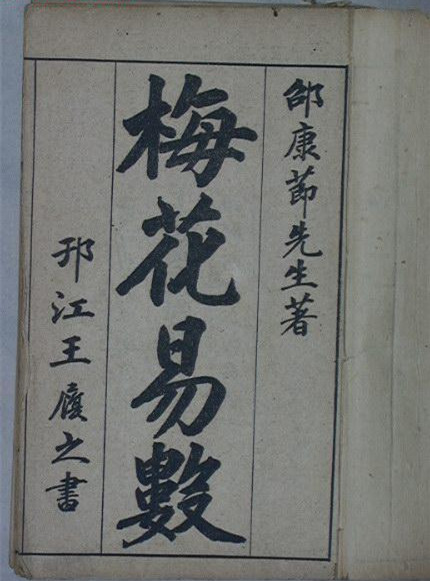 邵康節先生著
梅花易數
邗江王廣之書